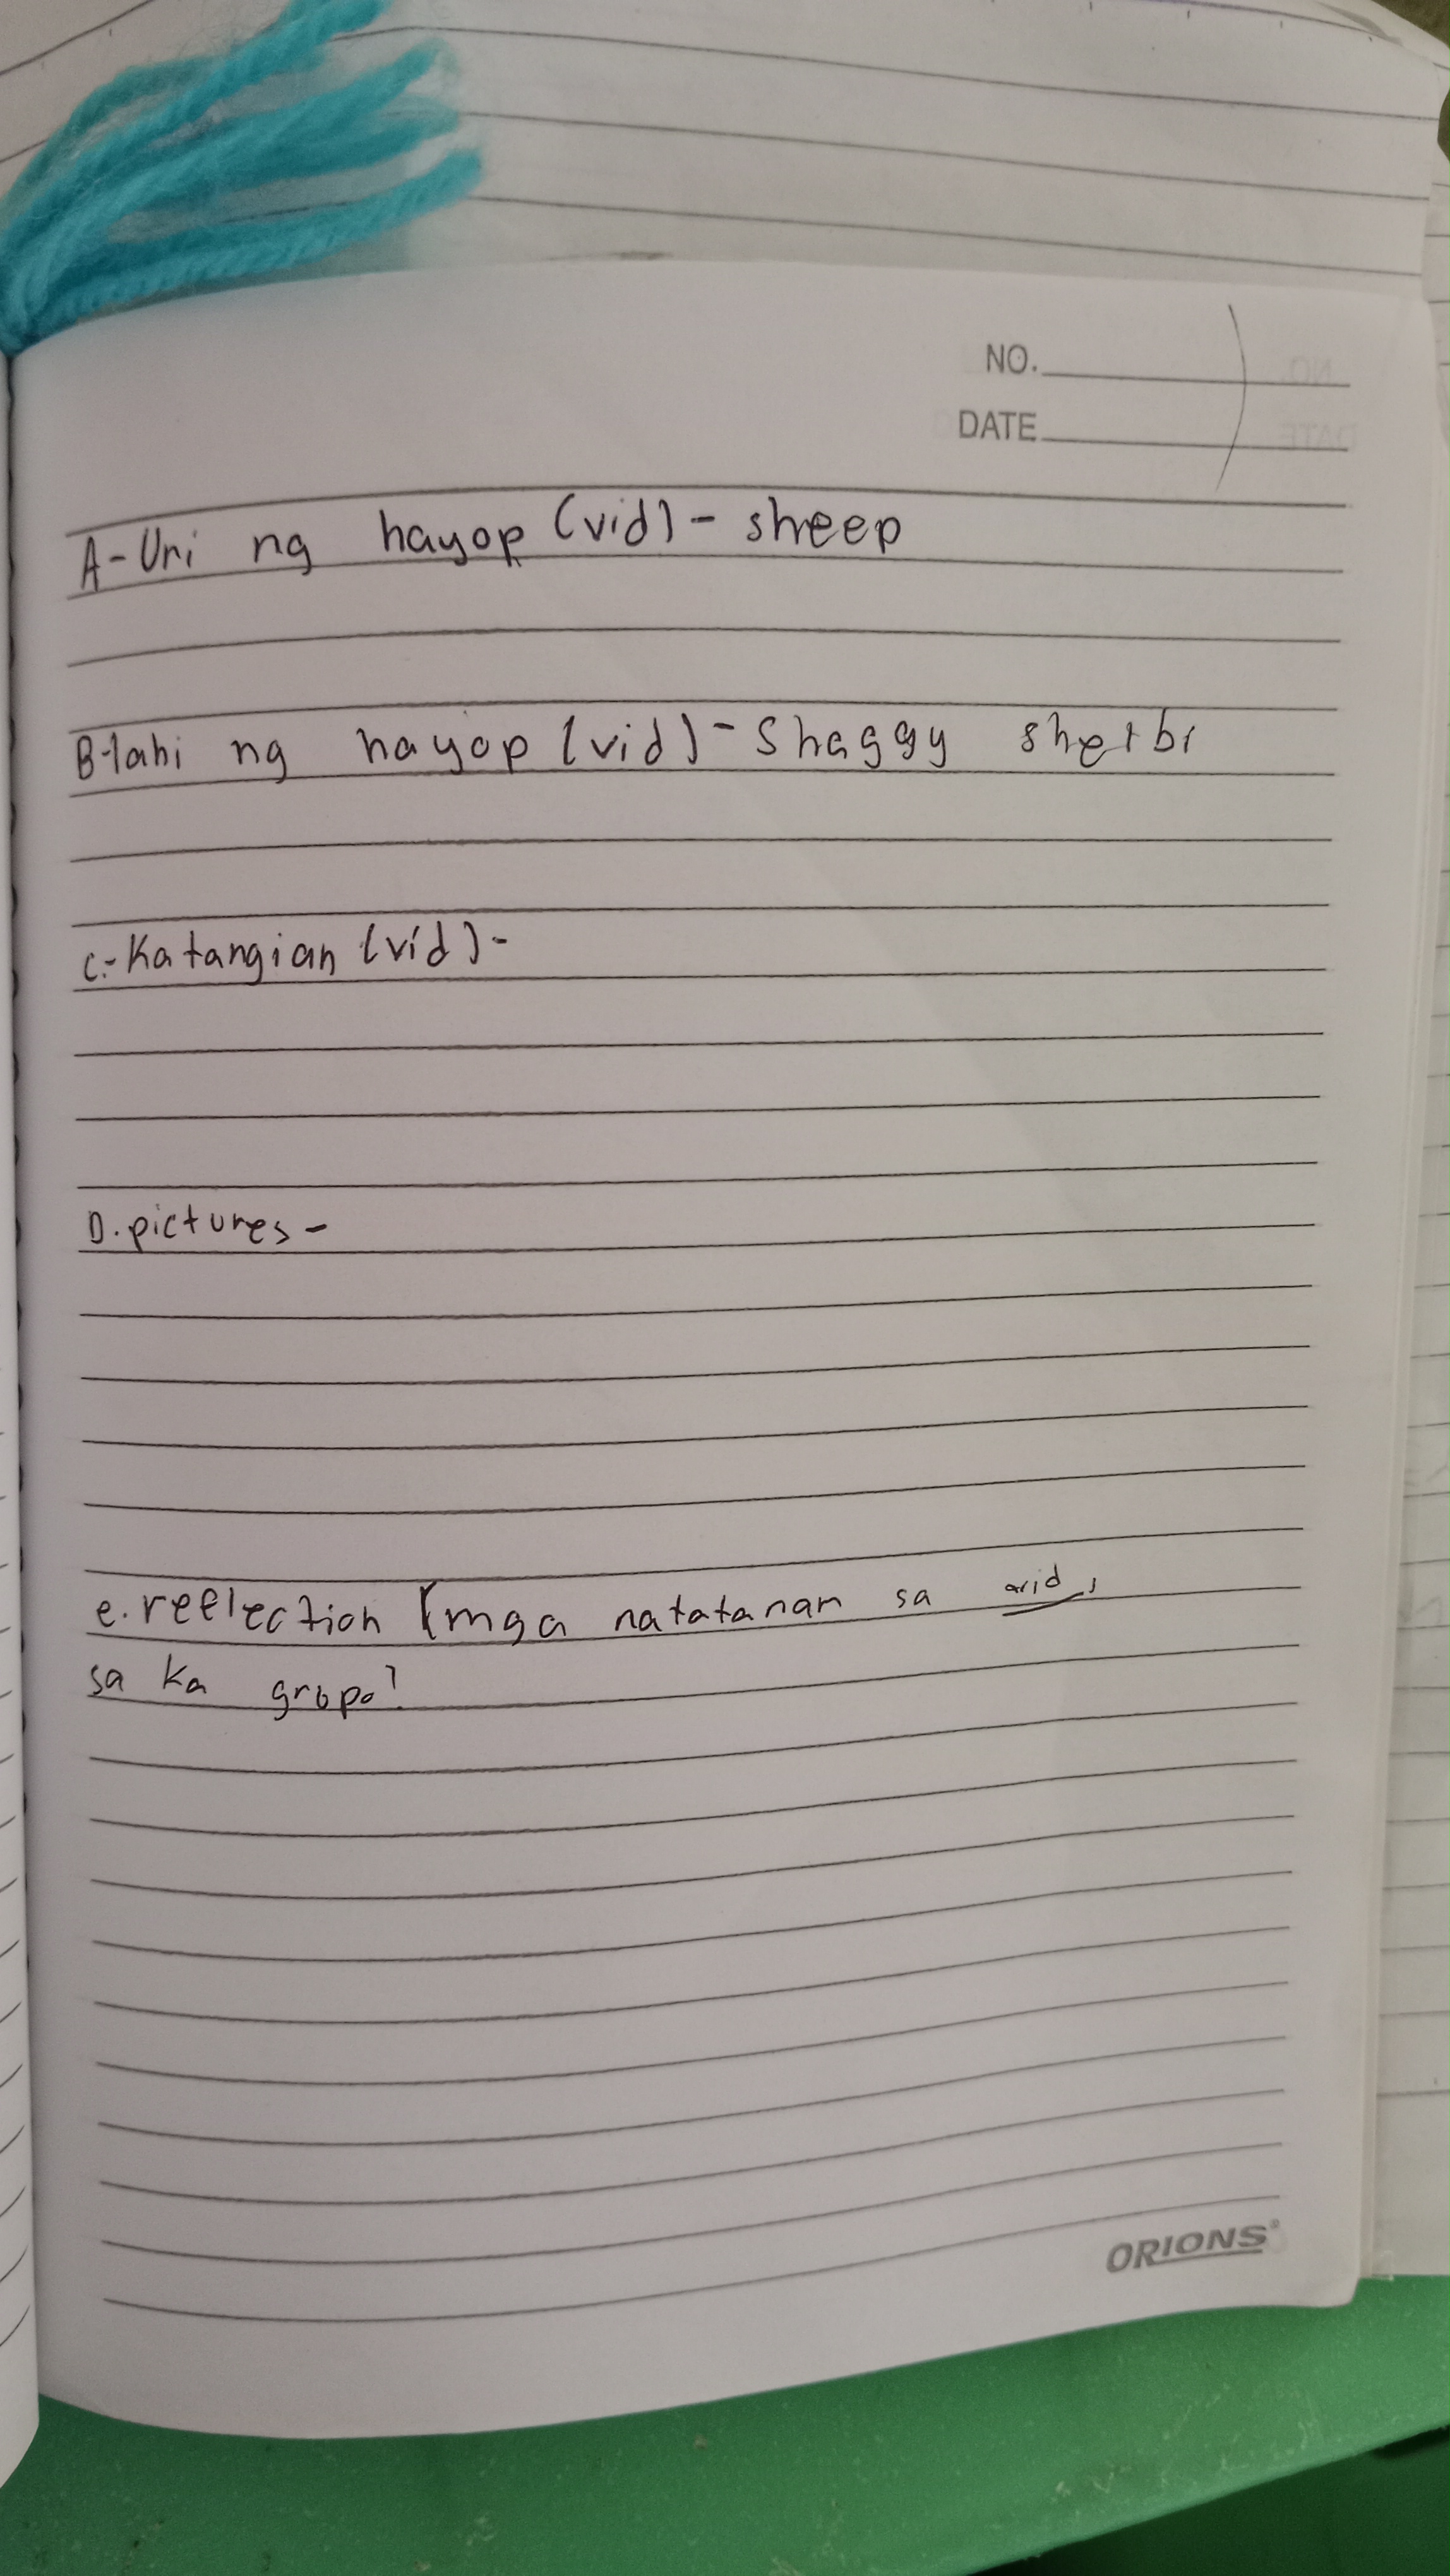 NO.
DATE
A-Uri ng hayop (vid) - sheep
B-lahi ng hayop (vid) - Shaggy
C.- Katangian (vid) -
D. pictures -
e. reflection (mga natatanan sa vid,
sa ka grupo)
ORIONS